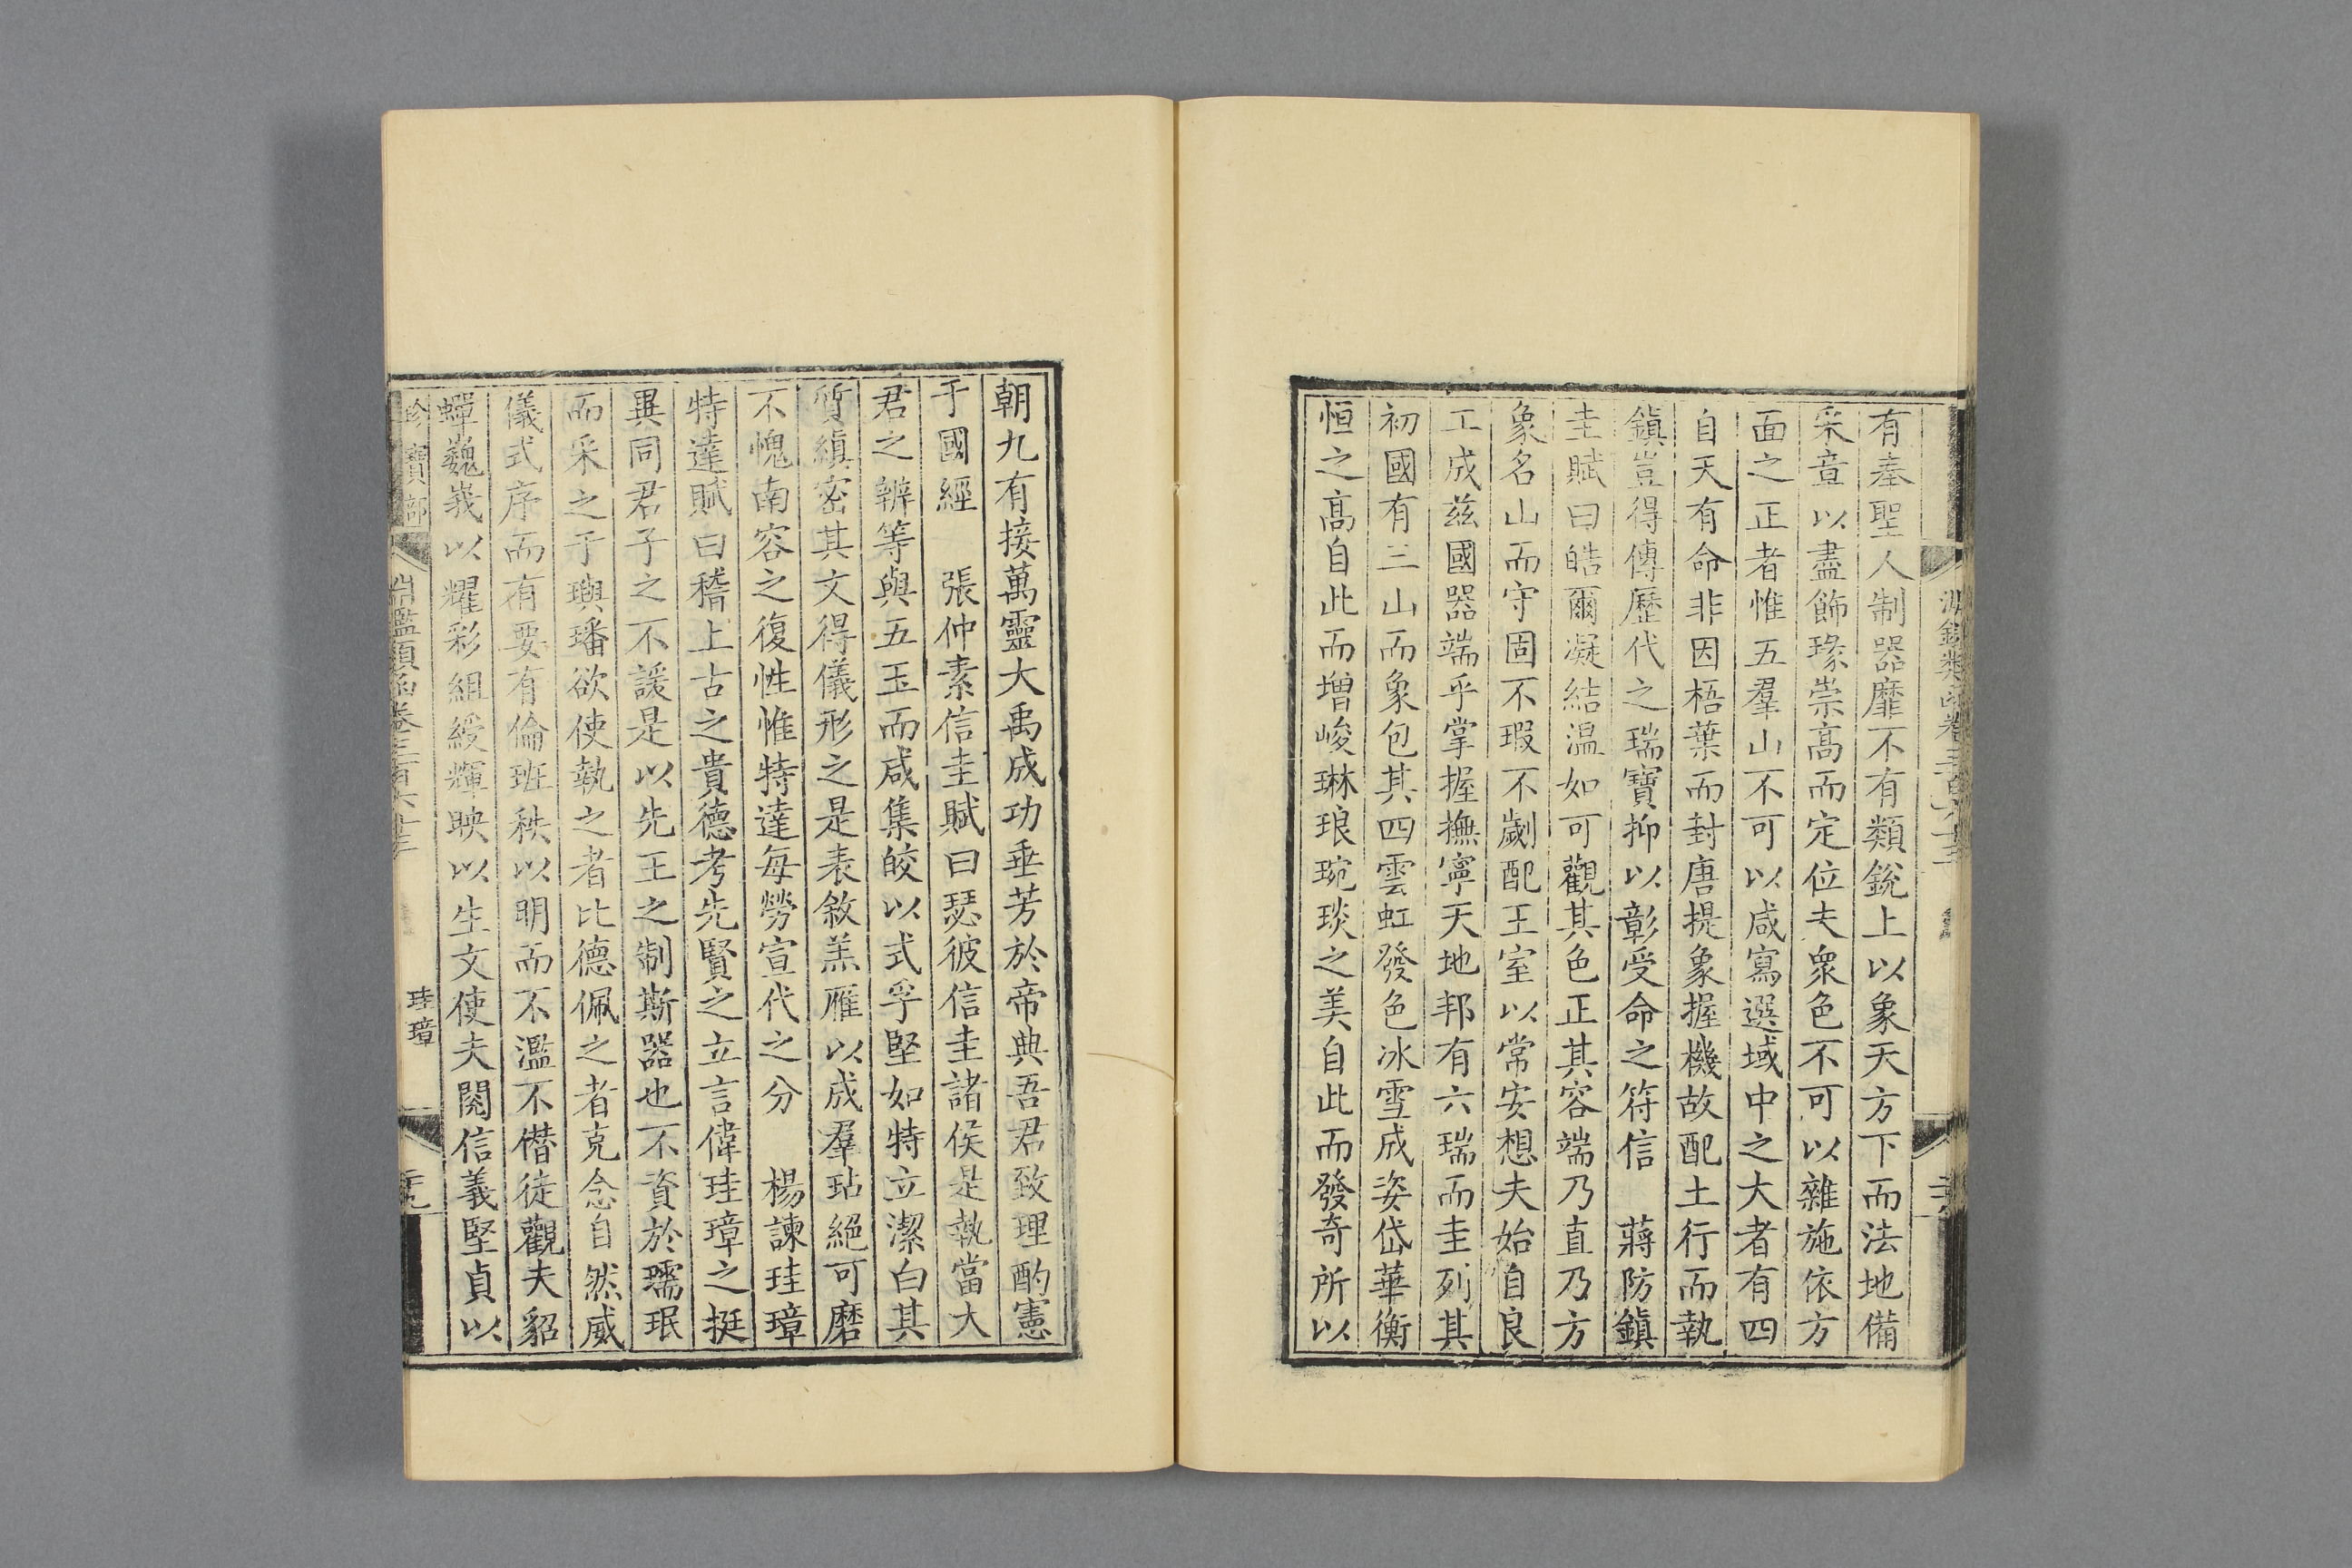 有奉聖人制器靡不有類銳上以象天方下而法地備
采章以盡飾瑑崇高而定位夫衆色不可以雜施依方
面之正者惟五羣山不可以咸寫選域中之大者有四
自天有命非因梧葉而封唐提象握機故配土行而執
鎮豈得傳歷代之瑞寶抑以彰受命之符信　蔣防鎮
圭賦曰皓爾凝結温如可觀其色正其容端乃直乃方
象名山而守固不瑕不劌配王室以常安想夫始自良
工成兹國器端乎掌握撫寧天地邦有六瑞而圭列其
初國有三山而象包其四雲虹發色冰雪成姿岱華衡
恒之高自此而増峻琳琅琬琰之美自此而發奇所以
朝九有接萬靈大禹成功垂芳於帝典吾君致理酌憲
于國經　張仲素信圭賦曰瑟彼信圭諸侯是執當大
君之辨等與五玉而咸集皎以式孚堅如特立潔白其
質縝密其文得儀形之是表敘羔雁以成羣玷絕可磨
不愧南容之復性惟特達每勞宣代之分　楊諫珪璋
特達賦曰稽上古之貴德考先賢之立言偉珪璋之挺
異同君子之不諼是以先王之制斯器也不資於瓀珉
而采之于璵璠欲使執之者比德佩之者克念自然威
儀式序而有要有倫班秩以明而不濫不僭徒觀夫貂
蟬巍峩以耀彩組綬輝映以生文使夫閱信義堅貞以
珍寶部
淵鑑類函卷三百六十三
珪璋